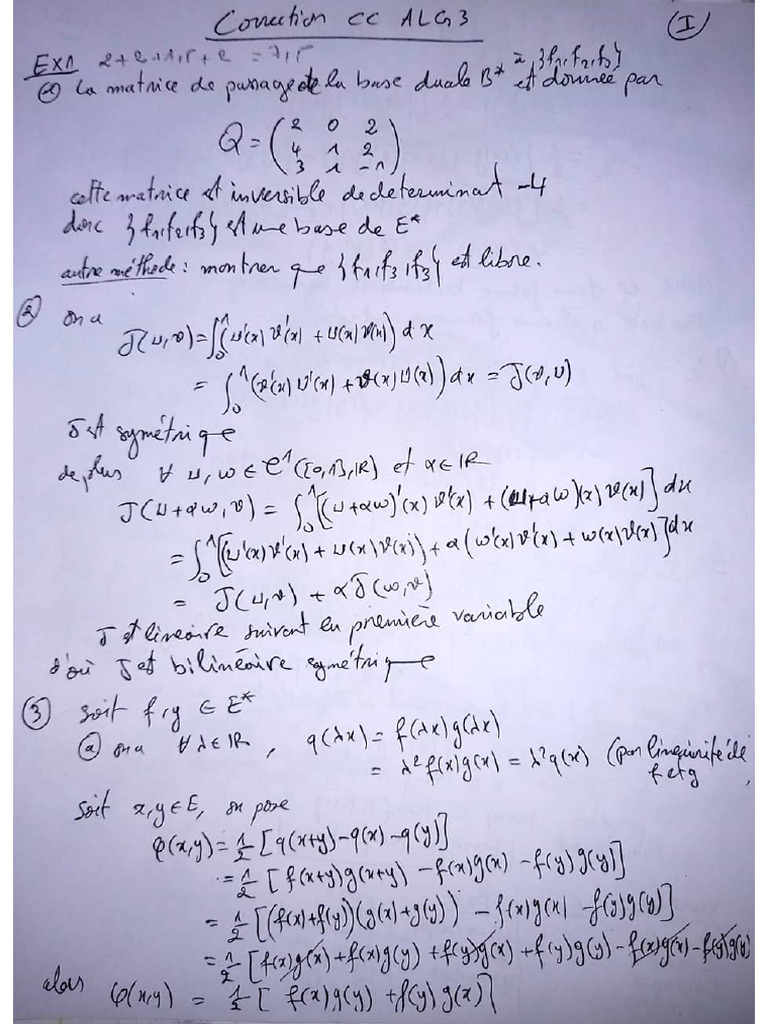 Correction CC ALG3 (I)
EX1 2+2+1,5+2 = 7,5
① La matrice de passage de la base duale B* à {f1,f2,f3} est donnée par
Q = (2 0 2
4 1 2
3 1 -1)
cette matrice est inversible de determinant -4
donc {f1,f2,f3} est une base de E*
autre méthode : montrer que {f1,f3,f3} est libre.
② on a
J(u,v) = ∫₀¹(u'(x)v'(x) + u(x)v(x)) dx
= ∫₀¹(v'(x)u'(x) + v(x)u(x)) dx = J(v,u)
J est symétrique
de plus ∀ u, w ∈ C¹([0,1],IR) et α ∈ IR
J(u+αw, v) = ∫₀¹[(u+αw)'(x) v'(x) + (u+αw)(x) v(x)] dx
= ∫₀¹[(u'(x)v'(x) + u(x)v(x)) + α(w'(x)v'(x) + w(x)v(x)] dx
= J(u,v) + αJ(w,v)
J est linéaire suivant la première variable
d'où J est bilinéaire symétrique
③ soit f, g ∈ E*
ⓐ on a ∀ λ ∈ IR, q(λx) = f(λx)g(λx)
= λ²f(x)g(x) = λ²q(x) (par linéarité de
f et g,
soit x, y ∈ E, on pose
φ(x,y) = 1/2 [q(x+y) - q(x) - q(y)]
= 1/2 [f(x+y)g(x+y) - f(x)g(x) - f(y)g(y)]
= 1/2 [(f(x)+f(y))(g(x)+g(y)) - f(x)g(x) - f(y)g(y)]
= 1/2 [f(x)g(x) + f(x)g(y) + f(y)g(x) + f(y)g(y) - f(x)g(x) - f(y)g(y)
alors φ(x,y) = 1/2 [f(x)g(y) + f(y)g(x)]